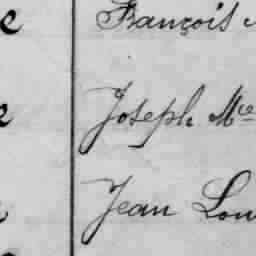 François
Joseph Mce
Jean Lou